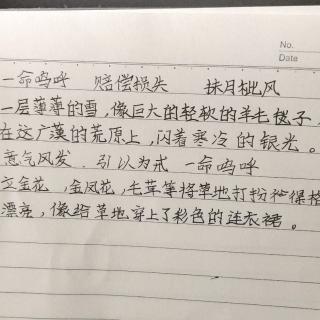 No.
Date
一命呜呼 赔偿损失 抹月批风
一层薄薄的雪,像巨大的轻软的羊毛毯子,
在这广漠的荒原上,闪着寒冷的银光。
意气风发 引以为戒 一命呜呼
立金花,金凤花,毛茛等将草地打扮得格
漂亮,像给草地穿上了彩色的连衣裙。